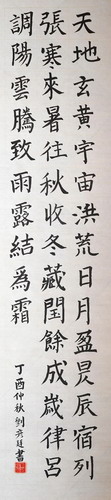 天地玄黃宇宙洪荒日月盈昃辰宿列
張寒來暑往秋收冬藏閏餘成歲律呂
調陽雲騰致雨露結爲霜
丁酉仲秋劉書